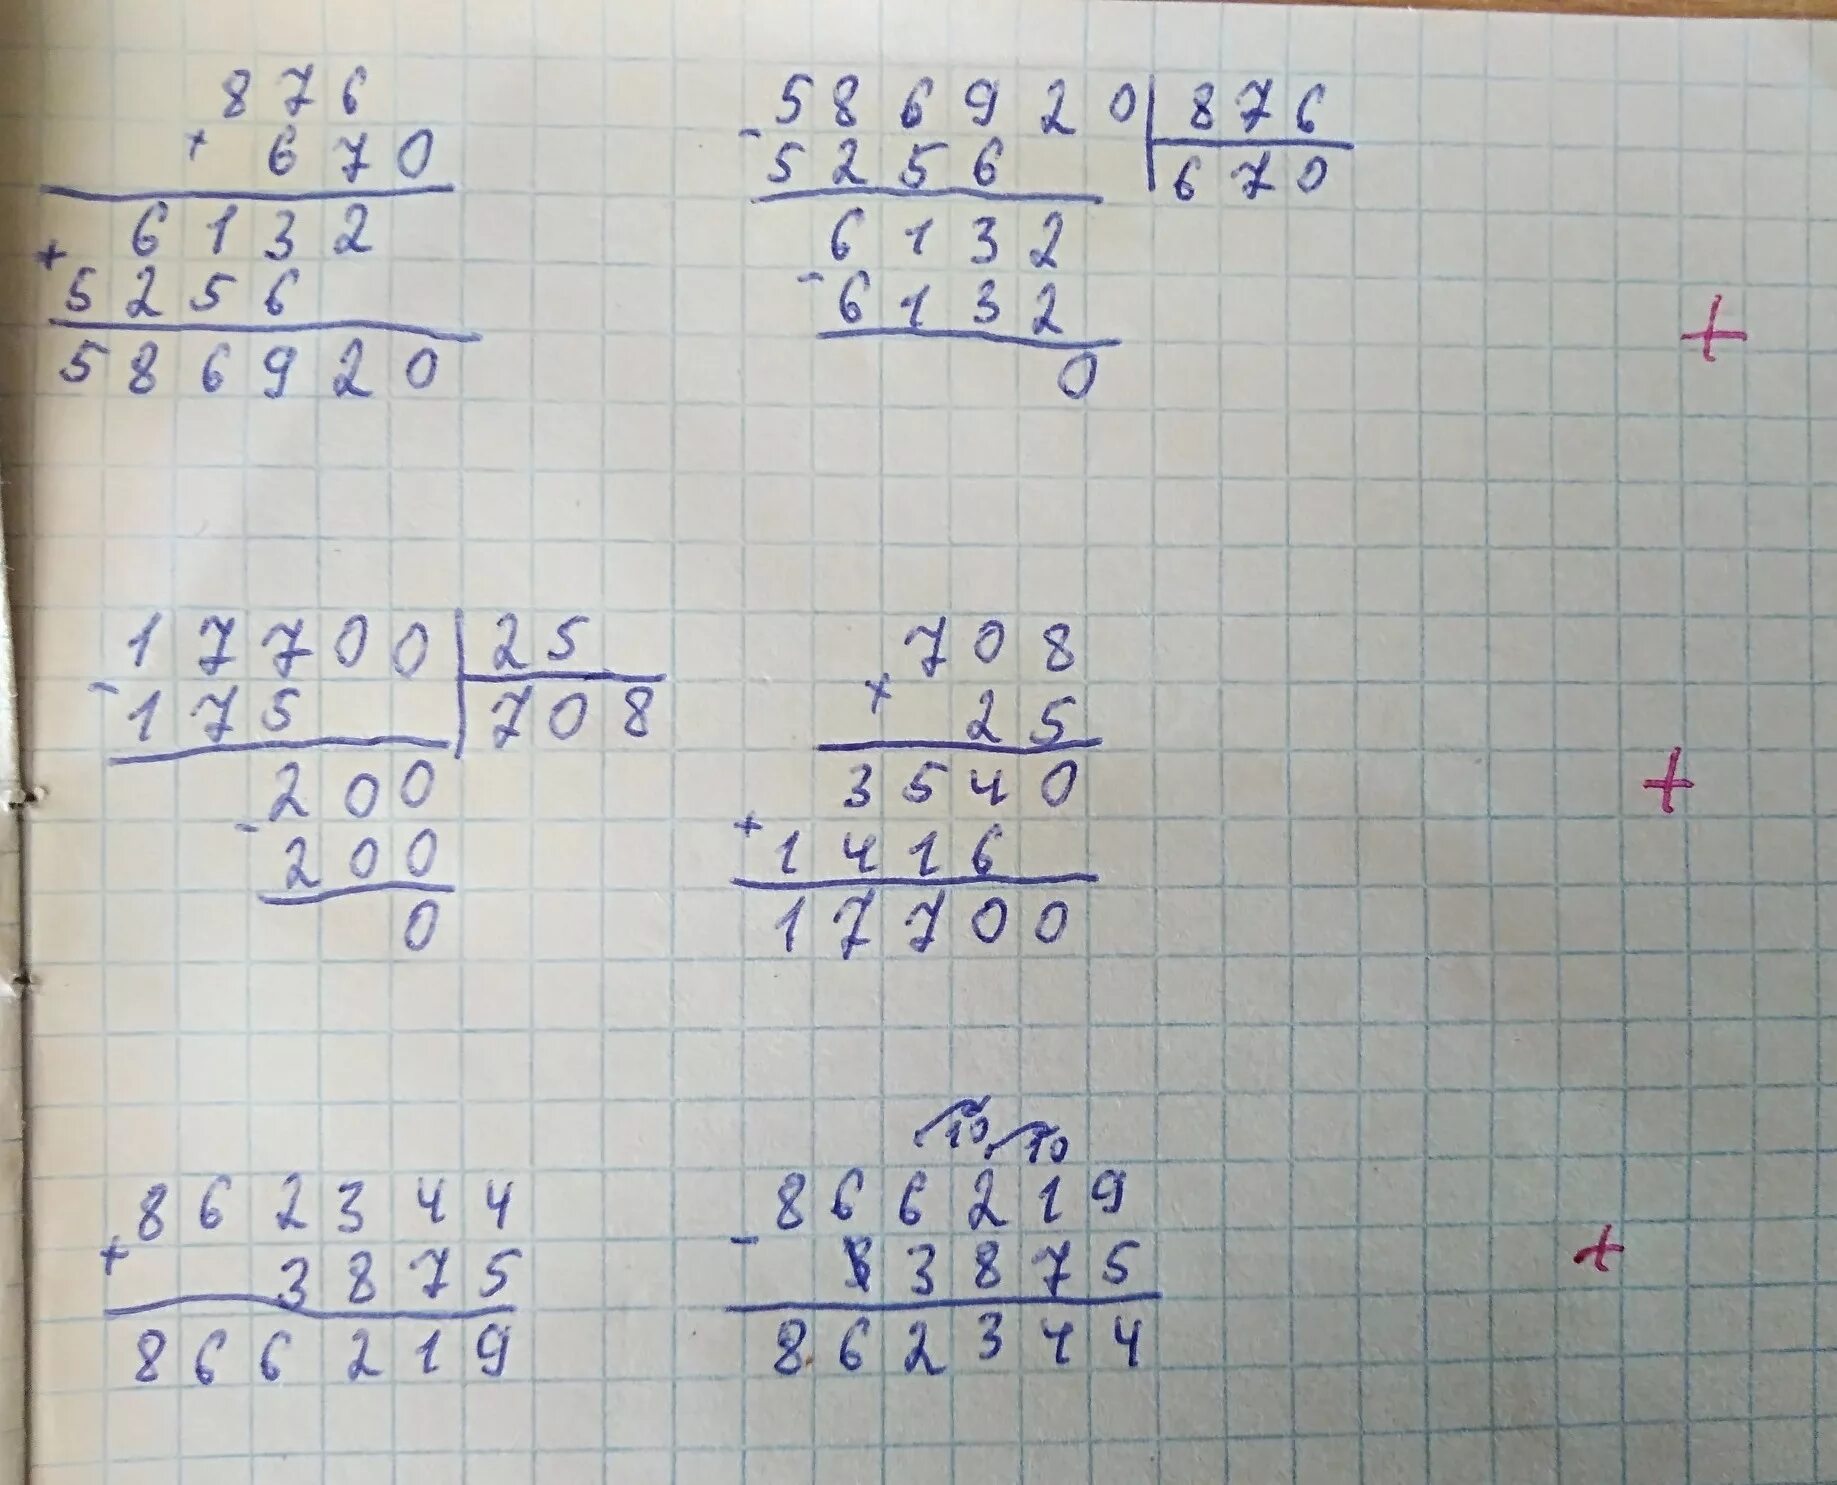 876
× 670
6132
+ 5256
586920
586920 | 876
- 5256 | 670
6132
- 6132
0
+
17700 | 25
- 175 | 708
200
- 200
0
708
× 25
3540
+ 1416
17700
+
862344
+ 3875
866219
10 10
866219
- 3875
862344
+